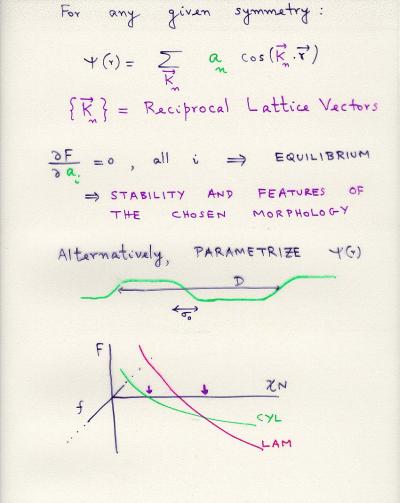 For any given symmetry :
Ψ(r) = Σ_{K⃗_n} a_n cos(K⃗_n · r⃗)
{K⃗_n} = Reciprocal Lattice Vectors
∂F/∂a_i = 0 , all i ⇒ EQUILIBRIUM
⇒ STABILITY AND FEATURES OF
THE CHOSEN MORPHOLOGY
Alternatively, PARAMETRIZE Ψ(r)
D
σ₀
F
χN
f
CYL
LAM